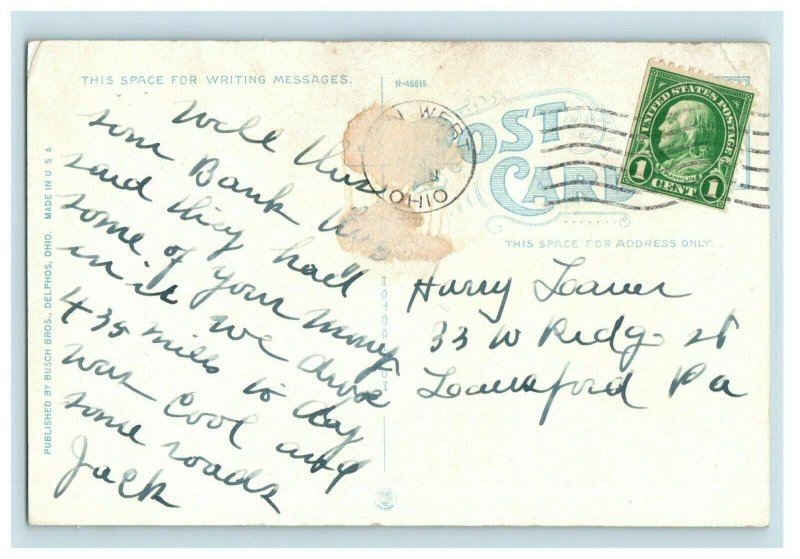 THIS SPACE FOR WRITING MESSAGES.
R-45515
POST
CARD
WERT
OHIO
UNITED STATES POSTAGE
FRANKLIN
1 CENT 1
THIS SPACE FOR ADDRESS ONLY.
PUBLISHED BY BUSCH BROS., DELPHOS, OHIO. MADE IN U S A
Well this
som Bank this
said they had
some of your money
in it we drove
435 miles to day
was cool and
some roads
Jack
Harry
33 W Ridge st
Lansford Pa